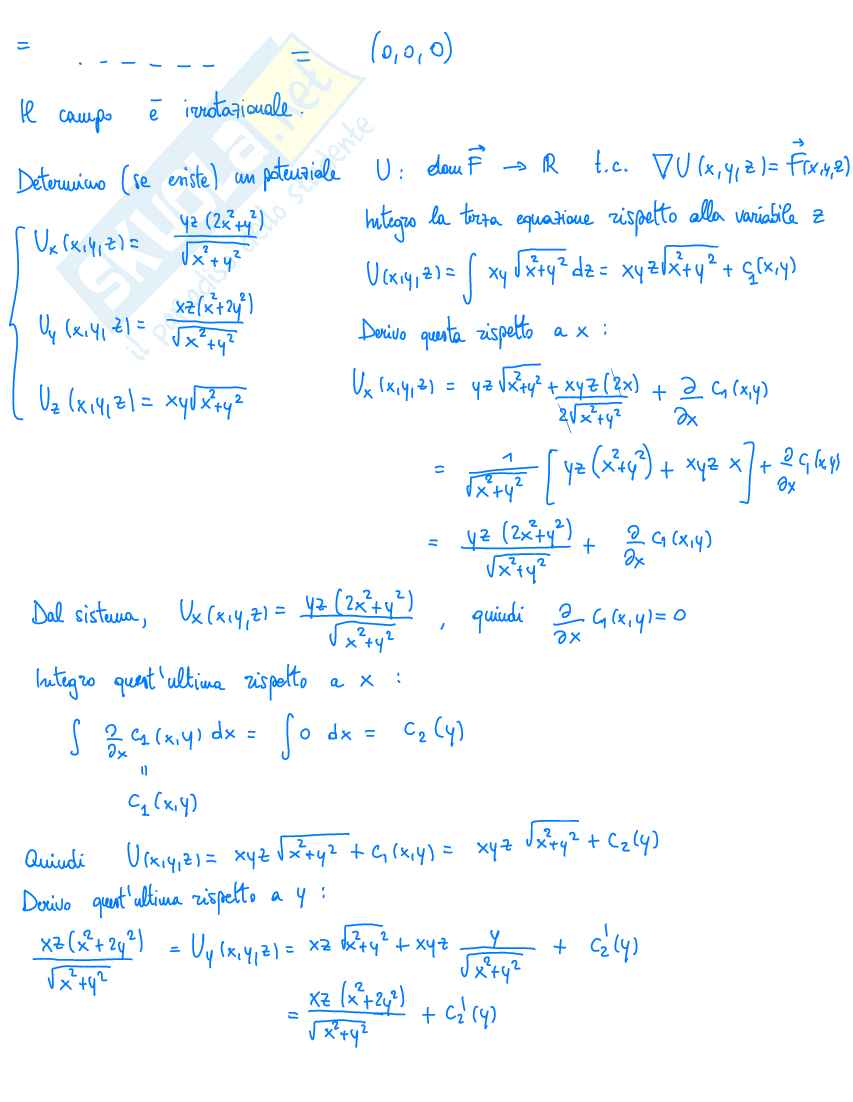 = . - - - - - = (0,0,0)
Il campo è irrotazionale.
Determino (se esiste) un potenziale U: dom F⃗ → ℝ t.c. ∇U(x,y,z) = F⃗(x,y,z)
{ Uₓ(x,y,z) = yz(2x²+y²)/√(x²+y²)
U_y(x,y,z) = xz(x²+2y²)/√(x²+y²)
U_z(x,y,z) = xy√(x²+y²)
Integro la terza equazione rispetto alla variabile z
U(x,y,z) = ∫ xy √(x²+y²) dz = xyz√(x²+y²) + C₁(x,y)
Derivo questa rispetto a x :
Uₓ(x,y,z) = yz√(x²+y²) + xyz(2x)/2√(x²+y²) + ∂/∂x C₁(x,y)
= 1/√(x²+y²) [ yz(x²+y²) + xyz x ] + ∂/∂x C₁(x,y)
= yz(2x²+y²)/√(x²+y²) + ∂/∂x C₁(x,y)
Dal sistema, Uₓ(x,y,z) = yz(2x²+y²)/√(x²+y²) , quindi ∂/∂x C₁(x,y) = 0
Integro quest'ultima rispetto a x :
∫ ∂/∂x C₁(x,y) dx = ∫ 0 dx = C₂(y)
=
C₁(x,y)
Quindi U(x,y,z) = xyz √(x²+y²) + C₁(x,y) = xyz √(x²+y²) + C₂(y)
Derivo quest'ultima rispetto a y :
xz(x²+2y²)/√(x²+y²) = U_y(x,y,z) = xz √(x²+y²) + xyz y/√(x²+y²) + C₂'(y)
= xz(x²+2y²)/√(x²+y²) + C₂'(y)
SKUOLA.net